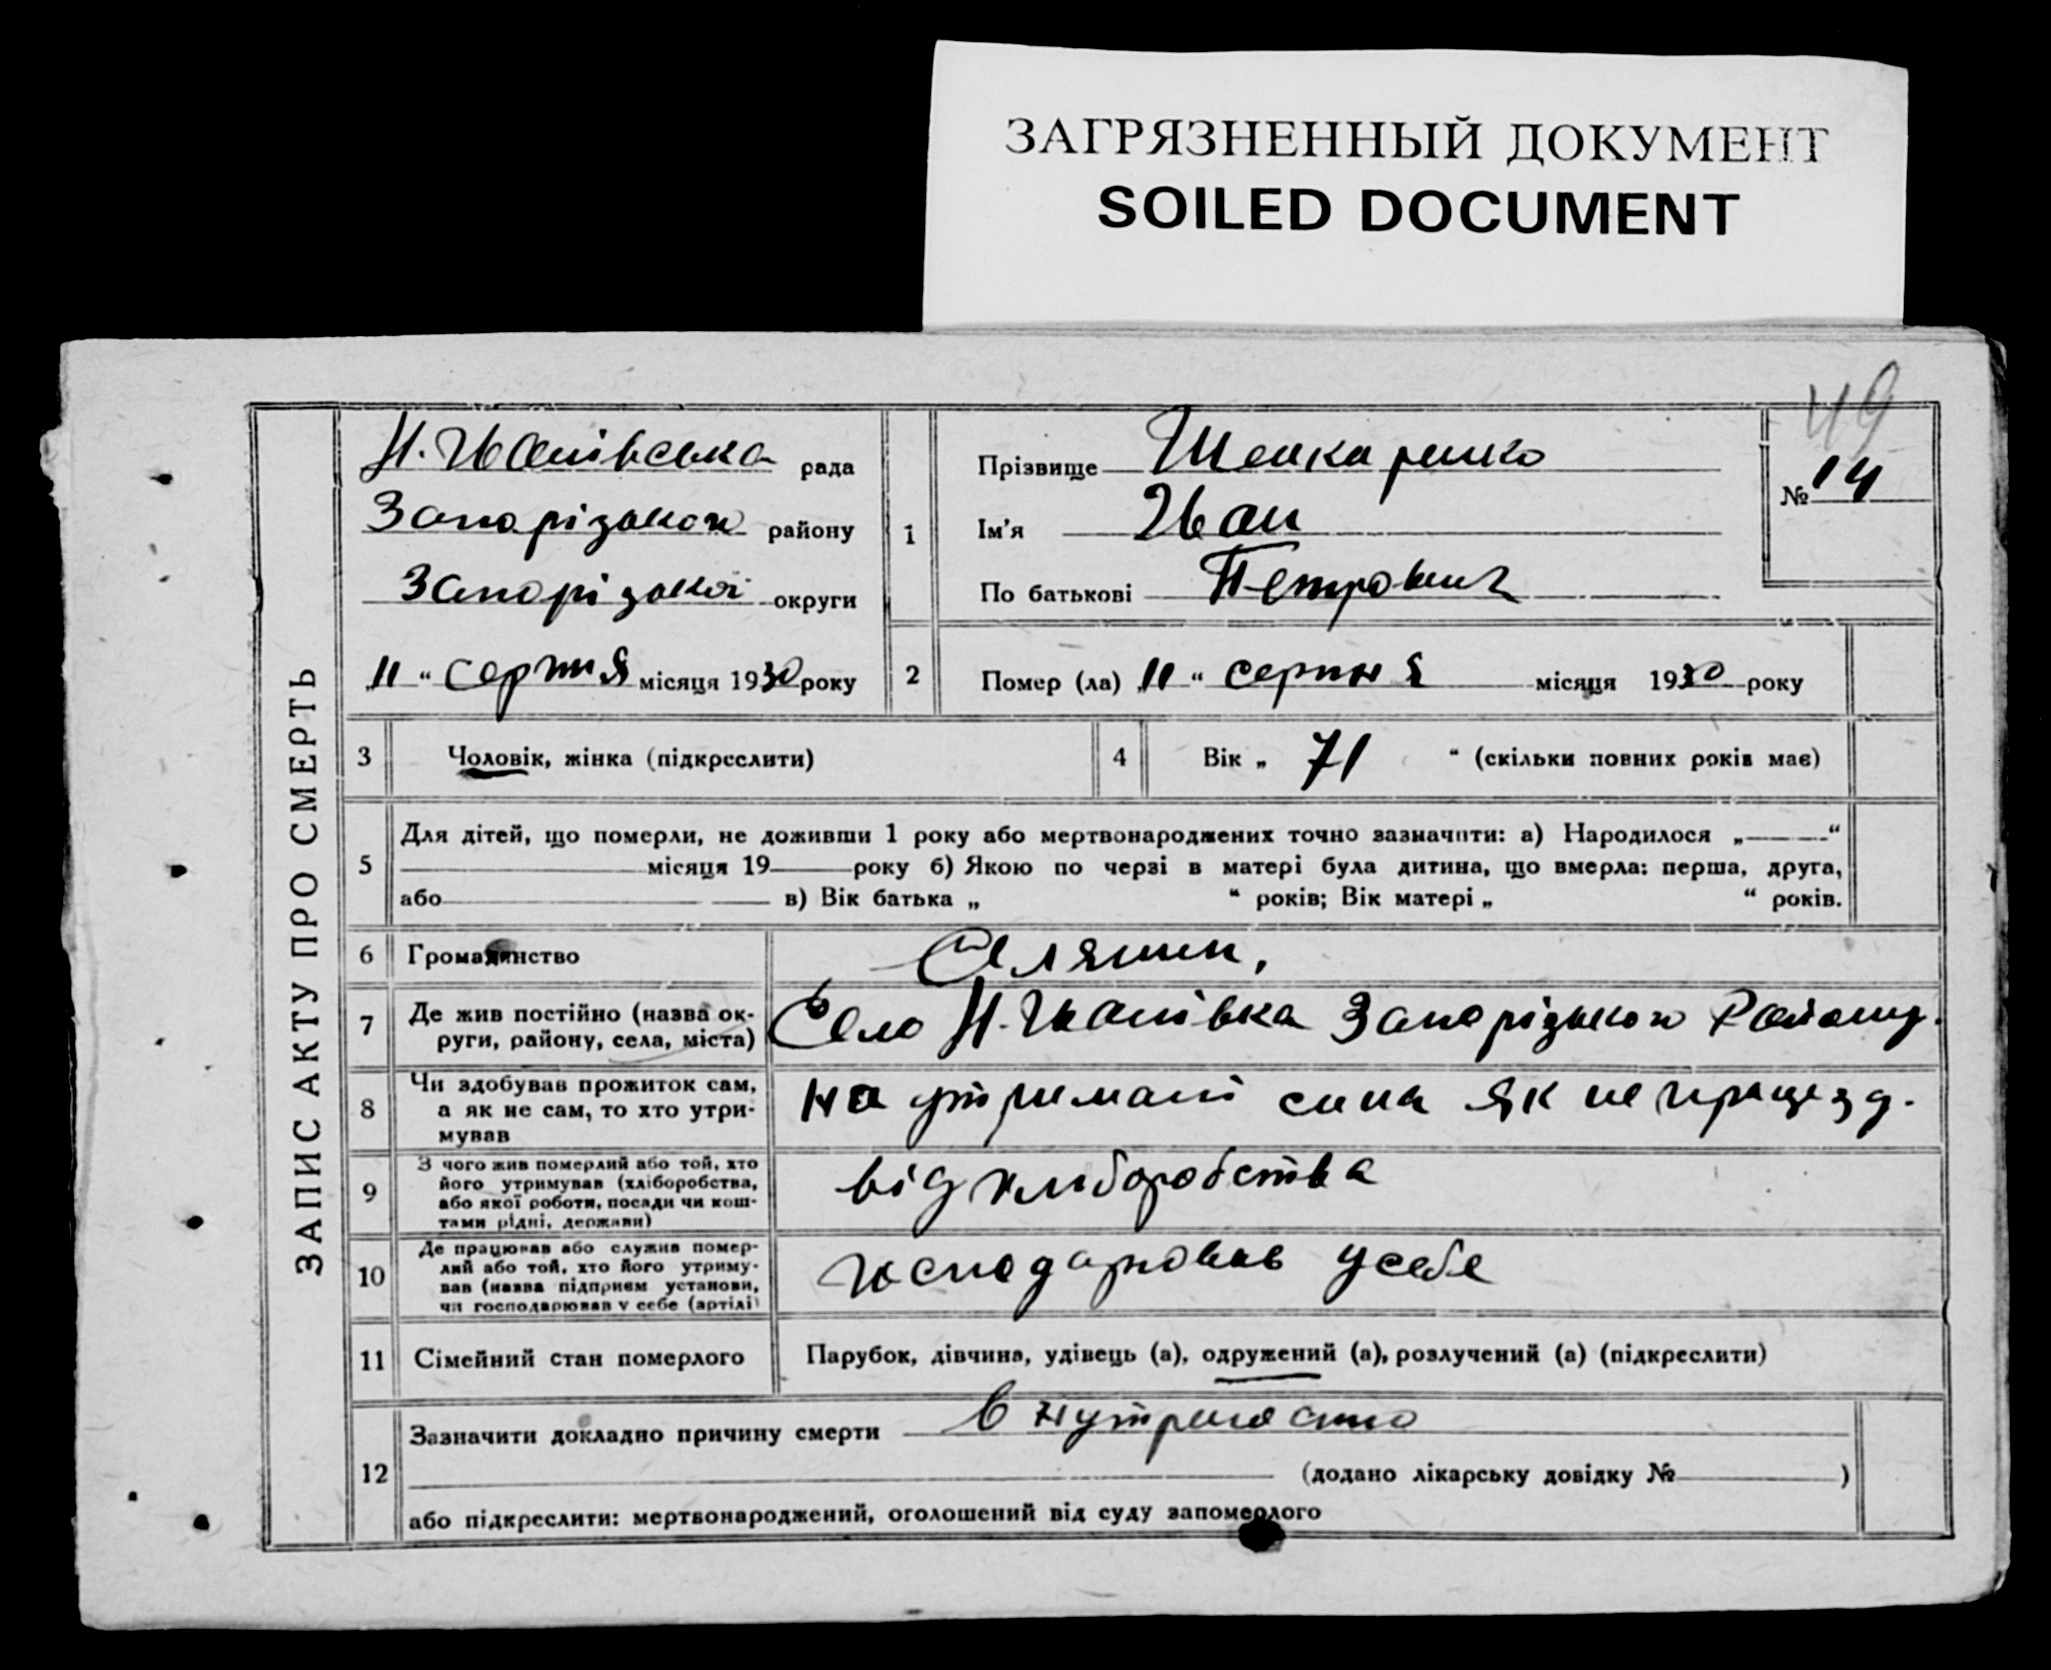 ЗАГРЯЗНЕННЫЙ ДОКУМЕНТ
SOILED DOCUMENT
49
ЗАПИС АКТУ ПРО СМЕРТЬ
Н. Іванівська рада
Запорізького району
Запорізької округи
„11“ серпня місяця 1930 року
1
Прізвище Шенкаренко
Ім'я Иван
По батькові Петрович
№ 14
2 Помер (ла) „11“ серпня місяця 1930 року
3 Чоловік, жінка (підкреслити)
4 Вік „ 71 “ (скільки повних років має)
5 Для дітей, що померли, не доживши 1 року або мертвонароджених точно зазначити: а) Народилося „ “
місяця 19 року б) Якою по черзі в матері була дитина, що вмерла: перша, друга,
або в) Вік батька „ “ років; Вік матері „ “ років.
6 Громадянство Селянин,
7 Де жив постійно (назва ок-
руги, району, села, міста)
Село Н. Іванівка Запорізького Району.
8 Чи здобував прожиток сам,
а як не сам, то хто утри-
мував
на утримані сина як не працезд.
9 З чого жив померлий або той, хто
його утримував (хліборобства,
або якої роботи, посади чи кош-
тами рідні, держави)
від хліборобства
10 Де працював або служив помер-
лий або той, хто його утриму-
вав (назва підприєм установи,
чи господарював у себе (артілі)
господарював у себе
11 Сімейний стан померлого Парубок, дівчина, удівець (а), одружений (а), розлучений (а) (підкреслити)
12 Зазначити докладно причину смерти
(додано лікарську довідку № )
або підкреслити: мертвонароджений, оголошений від суду запомерлого